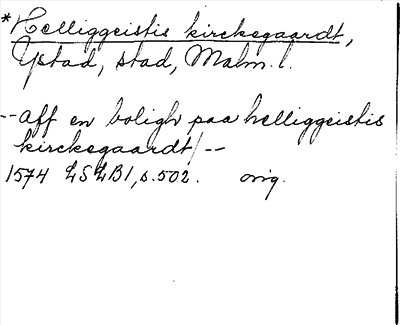 *Helliggeistis kirckegaardt,
Ystad, stad, Malm. l.
--aff en boligh paa helliggeistis
kirckegaardt/--
1574 LSLB1, s. 502. orig.